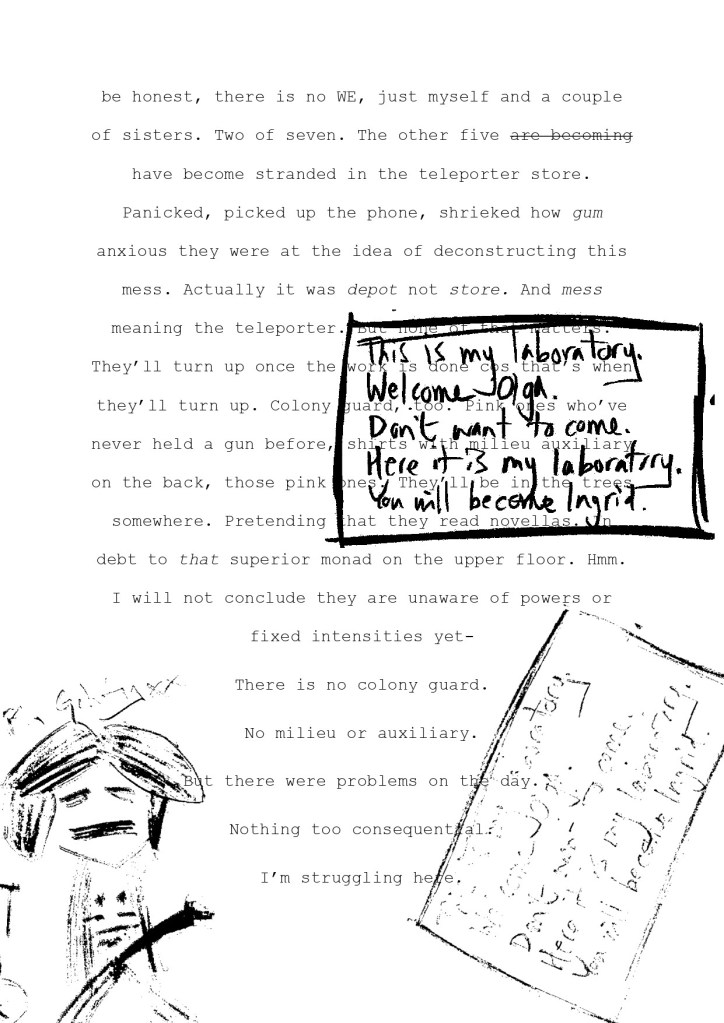 be honest, there is no WE, just myself and a couple
of sisters. Two of seven. The other five are becoming
have become stranded in the teleporter store.
Panicked, picked up the phone, shrieked how gum
anxious they were at the idea of deconstructing this
mess. Actually it was depot not store. And mess
meaning the teleporter. But none of that matters.
They’ll turn up once the work is done cos that’s when
they’ll turn up. Colony guard, too. Pink ones who’ve
never held a gun before, shirts with milieu auxiliary
on the back, those pink ones. They’ll be in the trees
somewhere. Pretending that they read novellas. In
debt to that superior monad on the upper floor. Hmm.
I will not conclude they are unaware of powers or
fixed intensities yet-
There is no colony guard.
No milieu or auxiliary.
But there were problems on the day.
Nothing too consequential.
I’m struggling here.
This is my laboratory.
Welcome Olga.
Don't want to come.
Here it is my laboratory.
You will become Ingrid.
laboratory.
Don't
come.
Here it is my laboratory.
You will become Ingrid.